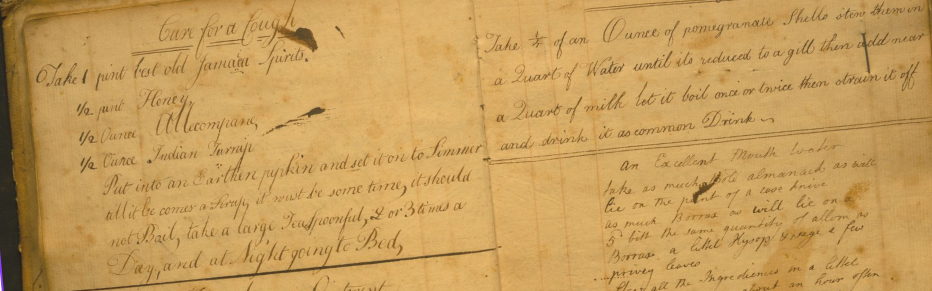 Cure for a Cough
Take 1 pint best old Jamaca Spirits.
1/2 pint Honey,
1/2 Ounce Allecompane,
1/2 Ounce Indian Turnip
Put into an Earthen pipkin and set it on to Simmer
till it be comes a Sirap, it must be some time, it should
not Boil, take a large Teaspoonful, 2 or 3 times a
Day, and at Night going to Bed,
Ointment
Take 1/4 of an Ounce of pomegranate Shells stew them in
a Quart of Water until its reduced to a gill then add near
a Quart of milk let it boil once or twice then strain it off
and drink it as common Drink
An Excellent Mouth Water
take as much bole almanack as will
lie on the point of a case knive
as much Borrax as will lie on a
5 bitt the same quantity of allom as
Borrax a littel Hysop & sage a few
privey leaves
all the Ingrediences in a littel
about an hour often